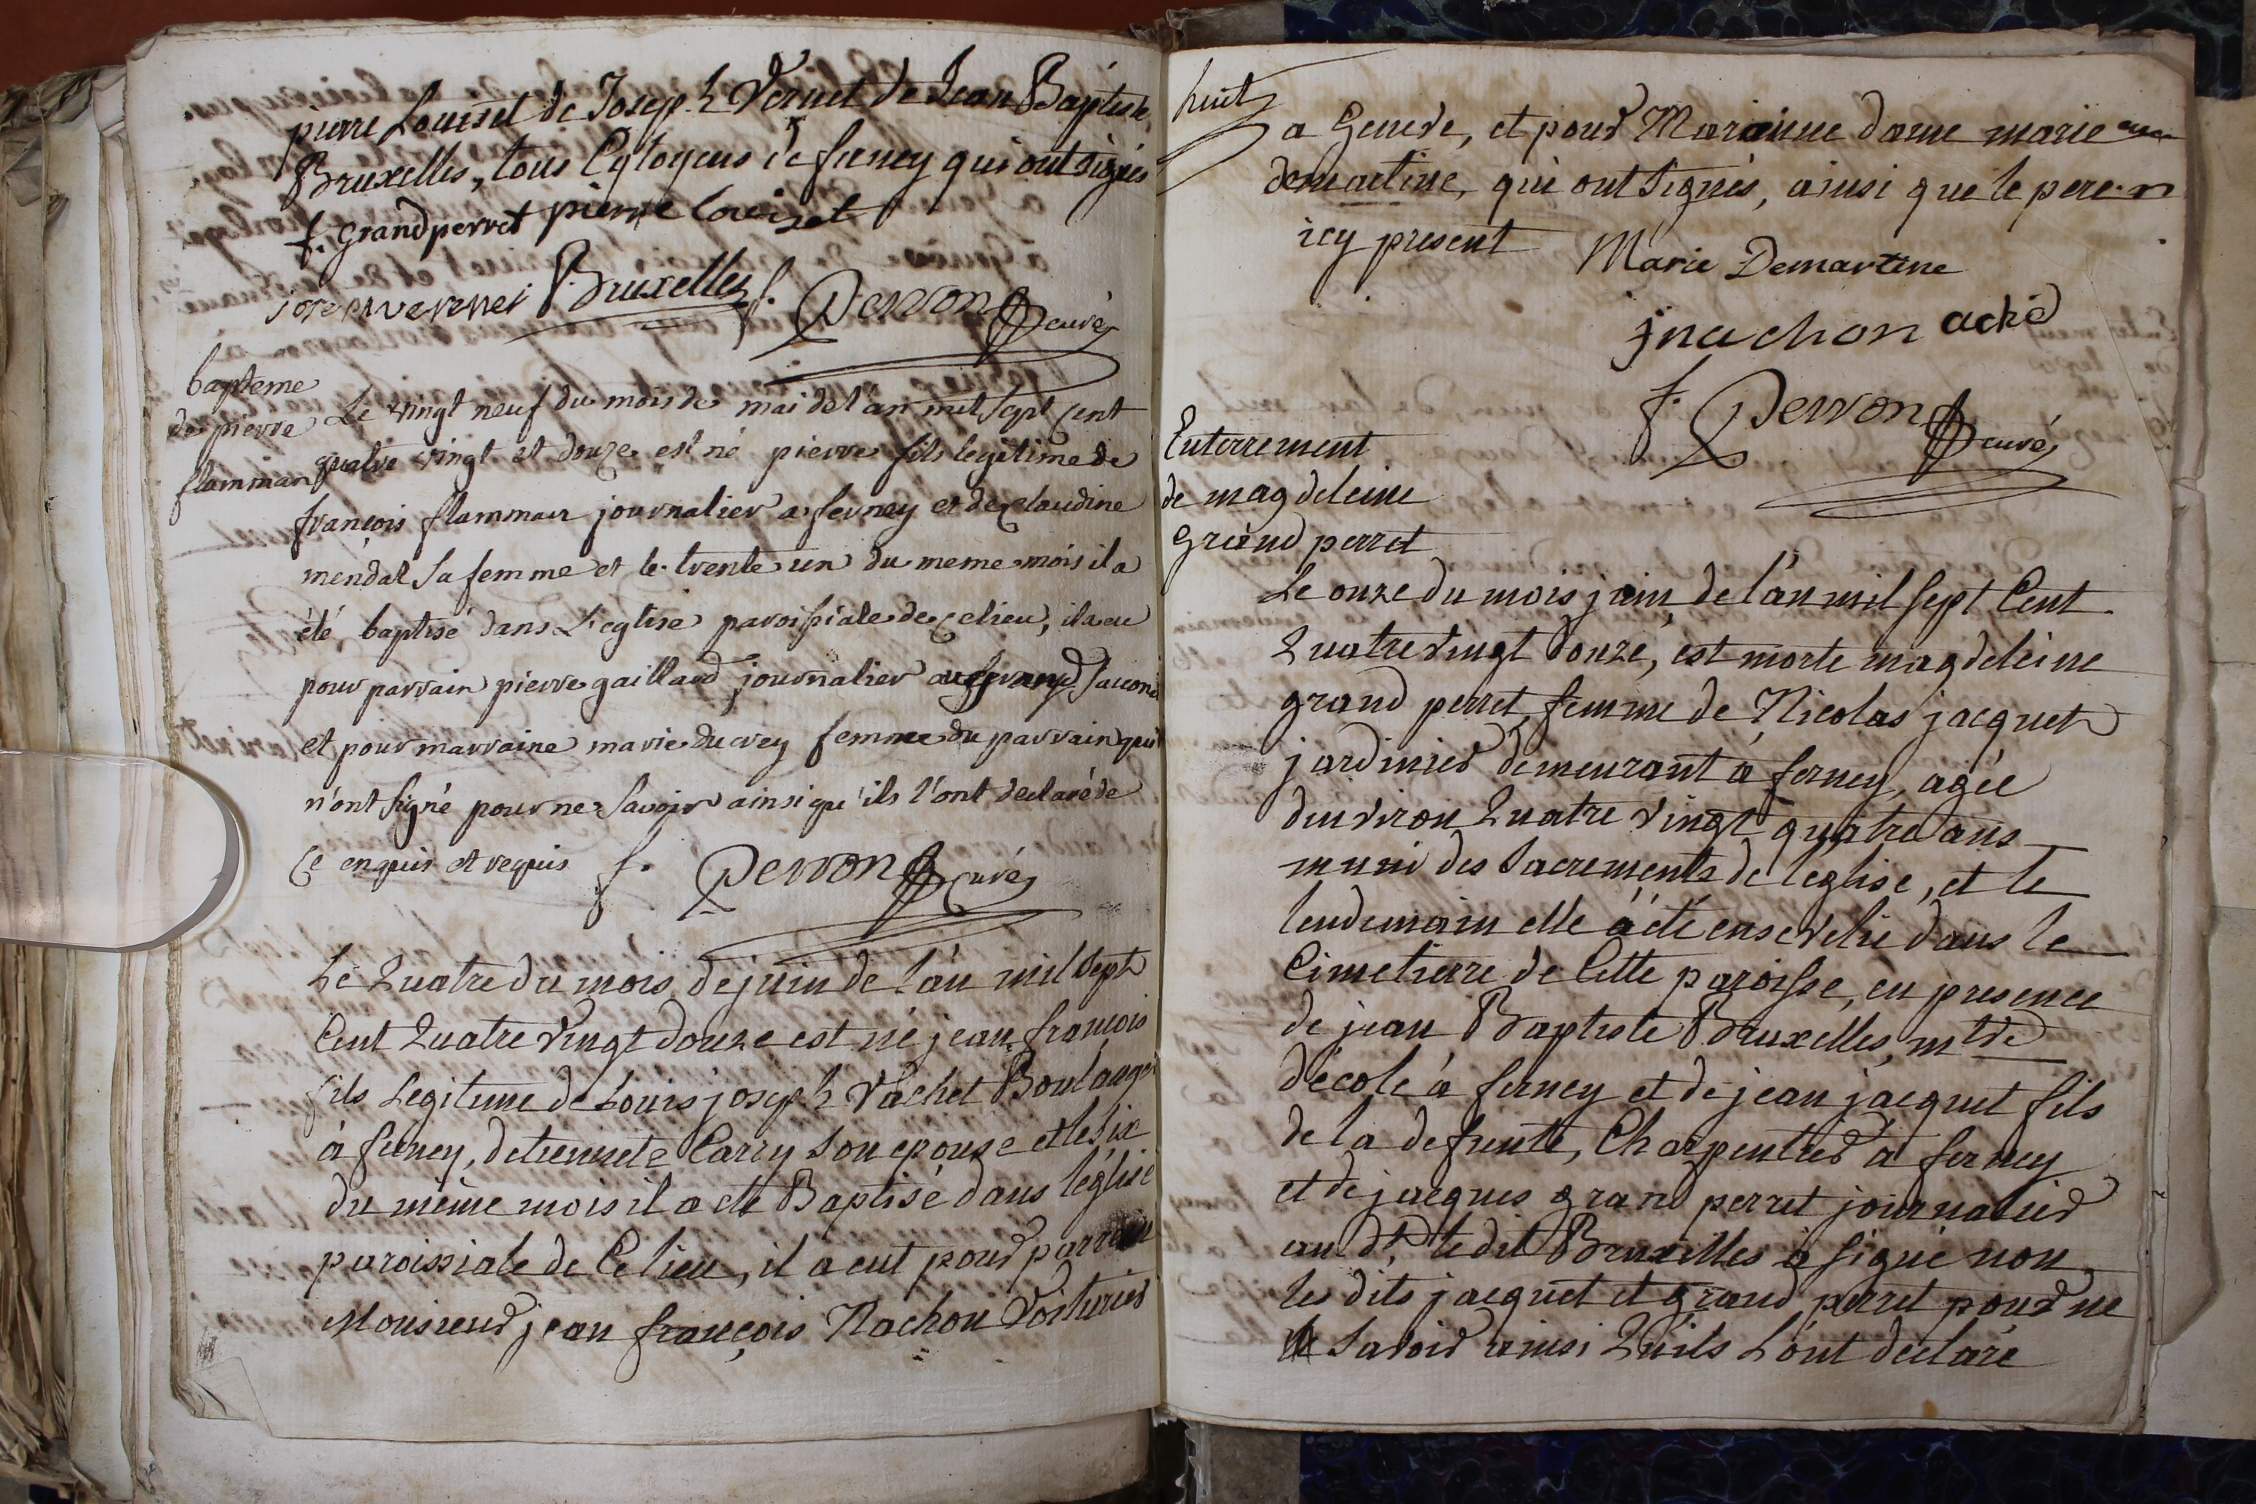 pierre Louiset de Joseph Vernet de Jean Baptiste
Bruxelles, tous Cytoyens de ferney qui ont signés
f. grandperret pierre louiset
Bruxelles f. Perron curé
bapteme
de pierre
flamman
Le vingt neuf du mois de mai de l'an mil sept cent
quatre vingt et douze est né pierre fils legitime de
françois flamman journalier a ferney et de claudine
mendat sa femme et le trente un du meme mois il a
été baptisé dans L'eglise paroissiale de ce lieu, il a eu
pour parrain pierre gaillard journalier au grand Saconé
et pour marraine marie ducrey femme du parrain qui
n'ont signé pour ne savoir ainsi qu'ils l'ont declaré de
ce enquis et requis f. Perron curé
Le Quatre du mois de juin de l'an mil sept
Cent Quatre vingt douze est né jean françois
fils Legitime de Louis joseph Vachet Boulanger
à ferney, d'etiennete Carry son epouse et le six
du même mois il a eté Baptisé dans l'église
paroissiale de Ce lieu, il a eut pour parrain
Monsieur jean françois Nachon Voiturier
huit
a Geneve, et pour Maraine dame marie
demartine, qui ont signés, ainsi que le pere
icy present Marie Demartine
jnachon
f. Perron curé
Enterrement
de magdeleine
grand perret
Le onze du mois juin, de l'an mil sept Cent
Quatre vingt douze, est morte magdeleine
grand perret, femme de Nicolas jacquet
jardinier demeurant à ferney, agée
d'environ Quatre vingt quatre ans
muni des sacrements de l'eglise, et le
lendemain elle à été ensevelie dans le
Cimetierre de Cette paroisse, en presence
de jean Baptiste Bruxelles, mtre
d'école à ferney et de jean jacquet fils
de la defunte, Charpentier à ferney
et de jacques grand perret journalier
au dt, le dit Bruxelles à signé non
les dits jacquet et grand perret pour ne
savoir ainsi Qu'ils L'ont declaré